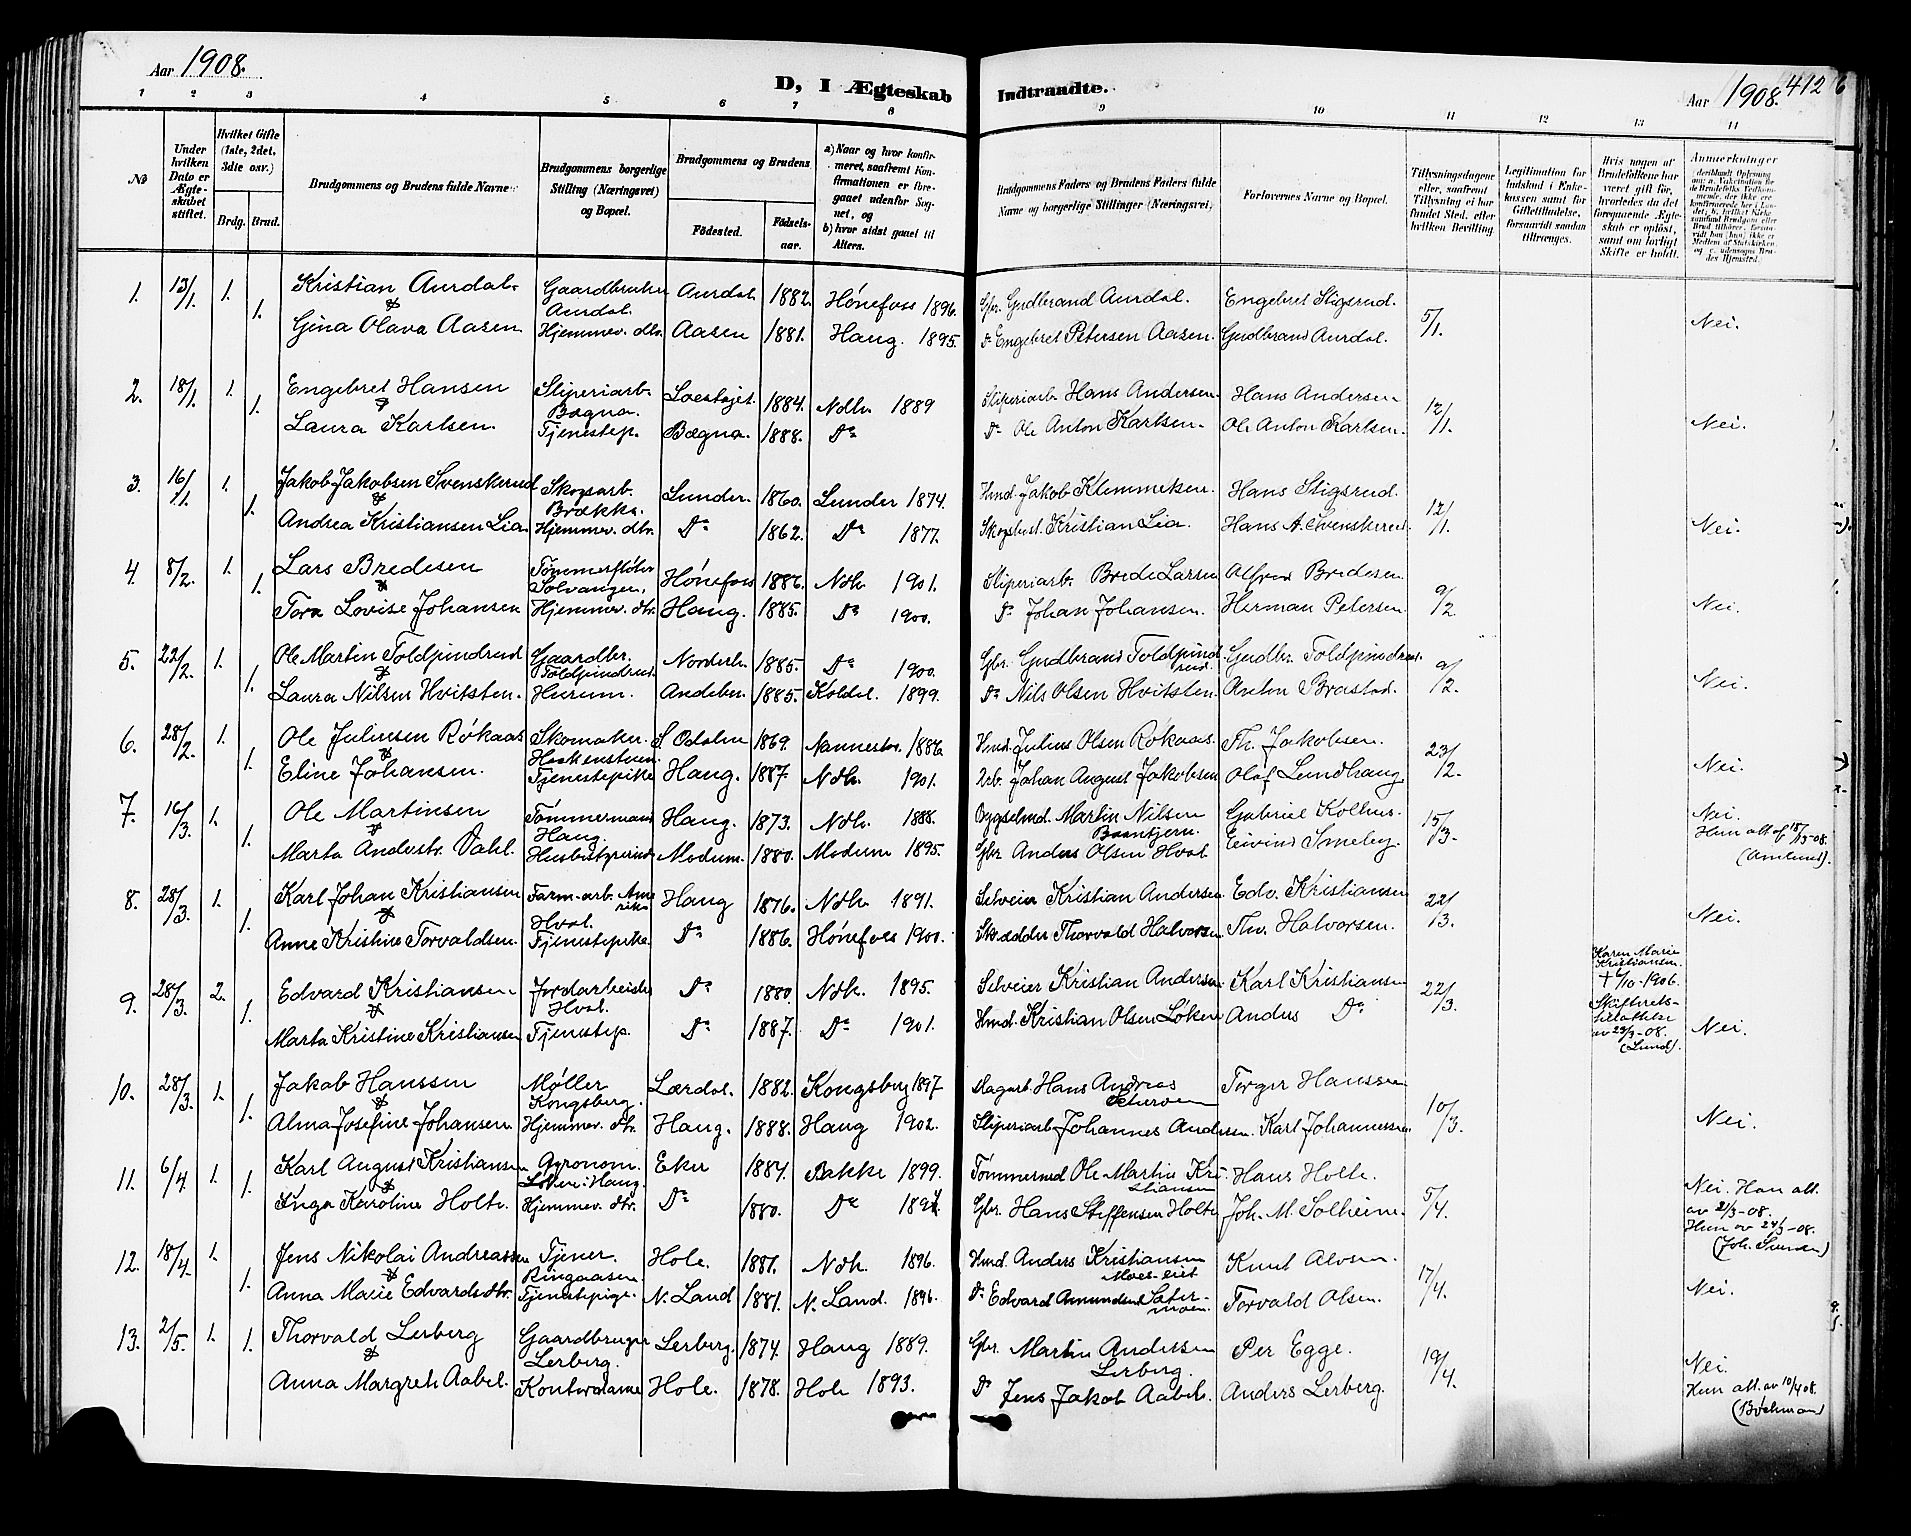 Aar 1908.
D, I Ægteskab Indtraadte.
Aar 1908. 412
1 2 3 4 5 6 7 8 9 10 11 12 13 14
No
Under hvilken Dato er Ægteskabet stiftet.
Hvilket Gifte (1ste, 2det, 3die osv.)
Brdg. Brud.
Brudgommens og Brudens fulde Navne
Brudgommens borgerlige Stilling (Næringsvei) og Bopæl.
Brudgommens og Brudens
Fødested. Fødselsaar.
a) Naar og hvor konfirmeret, saafremt Konfirmationen er foregaaet udenfor Sognet, og
b) hvor sidst gaaet til Alters.
Brudgommens Faders og Brudens Faders fulde Navne og borgerlige Stillinger (Næringsvei)
Forlovernes Navne og Bopæl.
Tillysningsdagene eller, saafremt Tillysning ei har fundet Sted, efter hvilken Bevilling
Legitimation for Indskud i Enkekassen samt for Giftetilladelse, forsaavidt saadan tiltrænges.
Hvis nogen af Brudefolkene har været gift før, hvorledes da det foregaaende Ægteskab er opløst, samt om lovligt Skifte er holdt.
Anmærkninger
1. 13/1. 1. Kristian Aurdal. Gaardbruker Aurdal. Aurdal 1882. Hønefos 1896. Gbr. Gudbrand Aurdal. Engebret Stigsrud. 5/1.
1. & Gina Olava Aasen Hjemmev. dtr. Aasen 1881. Haug. 1895. Do Engebret Petersen Aasen. Gudbrand Aurdal. Nei.
2. 18/1. 1. Engebret Hansen Sliperiarb. Bægna. 1884. Ndh. 1889 Sliperiarb. Hans Andersen. Hans Andersen 12/1.
1. & Laura Karlsen. Tjenestep. Bægna. 1888. Do Do Ole Anton Karlsen. Ole Anton Karlsen. Nei.
3. 16/1. 1. Jakob Jakobsen Svenskerud Skogsarb. Brækka. Lunder. 1860. Lunder 1874. Hmd. Jakob Klemmetsen. Hans Stigsrud. 12/1.
1. & Andrea Kristiansen Lia Hjemmev. dtr. Do 1862. Do 1877. Kristian Lia. Hans A. Svenskerud. Nei.
4. 8/2. 1. Lars Bredesen Tømmerfløter Solvangen. Hønefos 1886. Ndh. 1901. Sliperiarb. Brede Larsen Alfred Bredesen 9/2.
1. & Tora Lovise Johansen Hjemmev. dtr. Haug. 1885. Do 1900. Do Johan Johansen. Herman Petersen Nei.
5. 22/2. 1. Ole Martin Toldpindrud Gaardbr. Toldpindrud. Norderh. 1885. Do 1900. Gbr. Gudbrand Toldpindrud. Gudbr. Toldpindrud. 9/2.
1. & Laura Nilsen Hvitsten. Hurum. Andebu. 1885. Koldal. 1899. Do Nils Olsen Hvitsten. Anton Brastad. Nei.
6. 28/2. 1. Ole Juliussen Røkaas Skomaker. S Odalen 1869. Nannestad. 1886 Hmd. Julius Olsen Røkaas. Th. Jakobsen. 23/2.
1. & Eline Johansen. Tjenestepike Haug. 1887. Ndh. 1901. Arb. Johan August Jakobsen Olaf Lundhaug Nei.
7. 16/3. 1. Ole Martinsen Tømmermand Haug. Haug. 1873. Ndh. 1888. Bygselmd. Martin Nilsen Gabriel Kolhus. 15/3. Nei.
1. & Marta Andersdtr. Vahl. Husbestyrerinde Modum. 1880. Modum 1895. Gbr Anders Olsen Hval Eivind Smeby. Hun att. af 15/3-08. (Amlund).
8. 28/3. 1. Karl Johan Kristiansen Farm-arb. Amerika Hval. Haug 1876. Ndh. 1891. Selveier Kristian Andersen. Edv. Kristiansen 22/3.
1. & Anne Kristine Torvaldsen. Tjenestepike. Do 1886. Hønefos 1900. Skrædder Thorvald Halvorsen Th. Halvorsen. Nei.
9. 28/3. 2. Edvard Kristiansen Jordarbeider Hval. Do 1880. Ndh. 1895. Selveier Kristian Andersen Karl Kristiansen 22/3. Karen Marie Kristiansen. † 6/10-1906. Skifterets-attest av 23/3-08. (Lund).
1. & Marta Kristine Kristiansen Tjenestep. Do 1887. Do 1901. Hmd. Kristian Olsen Løken Anders Do Nei.
10. 28/3. 1. Jakob Hanssen Møller Kongsberg. Lærdal. 1882. Kongsberg 1897 Dagarb. Hans Andreas Torger Hanssen 10/3.
1. & Alma Josefine Johansen. Hjemmev. dtr. Haug. 1888. Haug 1902. Sliperiarb. Johannes Andersen. Karl Johannessen Nei.
11. 6/4. 1. Karl August Kristiansen Agronom. Løken i Haug. Eker 1884. Bakke 1899. Tømmermd Ole Martin Kristiansen Hans Holte. 5/4.
1. & Inga Karoline Holte. Hjemmev. dtr. Do 1880. Do 1894. Gbr. Hans Steffensen Holte Joh. M. Solheim. Nei. Han att. av 2/3-08. Hun av 24/3-08.
12. 18/4. 1. Jens Nikolai Andreassen Tjener. Ringaasen. Hole. 1881. Ndh. 1896. Hmd. Anders Kristiansen Moes-eiet Knut Alvsen. 17/4.
1. & Anna Marie Edvardsdtr. Tjenestepige. N. Land 1881. N. Land. 1896. Do Edvard Amundsen Sætermoen. Torvald Olsen. Nei.
13. 2/5. 1. 1. Thorvald Lerberg Gaardbruger Lerberg. Lerberg. 1874. Haug 1889. Gbr. Martin Andersen Lerberg. Per Egge. 19/4. Nei.
& Anna Margreth Aabel. Kontordame Hole. 1878. Hole 1893. Do Jens Jakob Aabel. Anders Lerberg. Hun att. av 10/4 08.